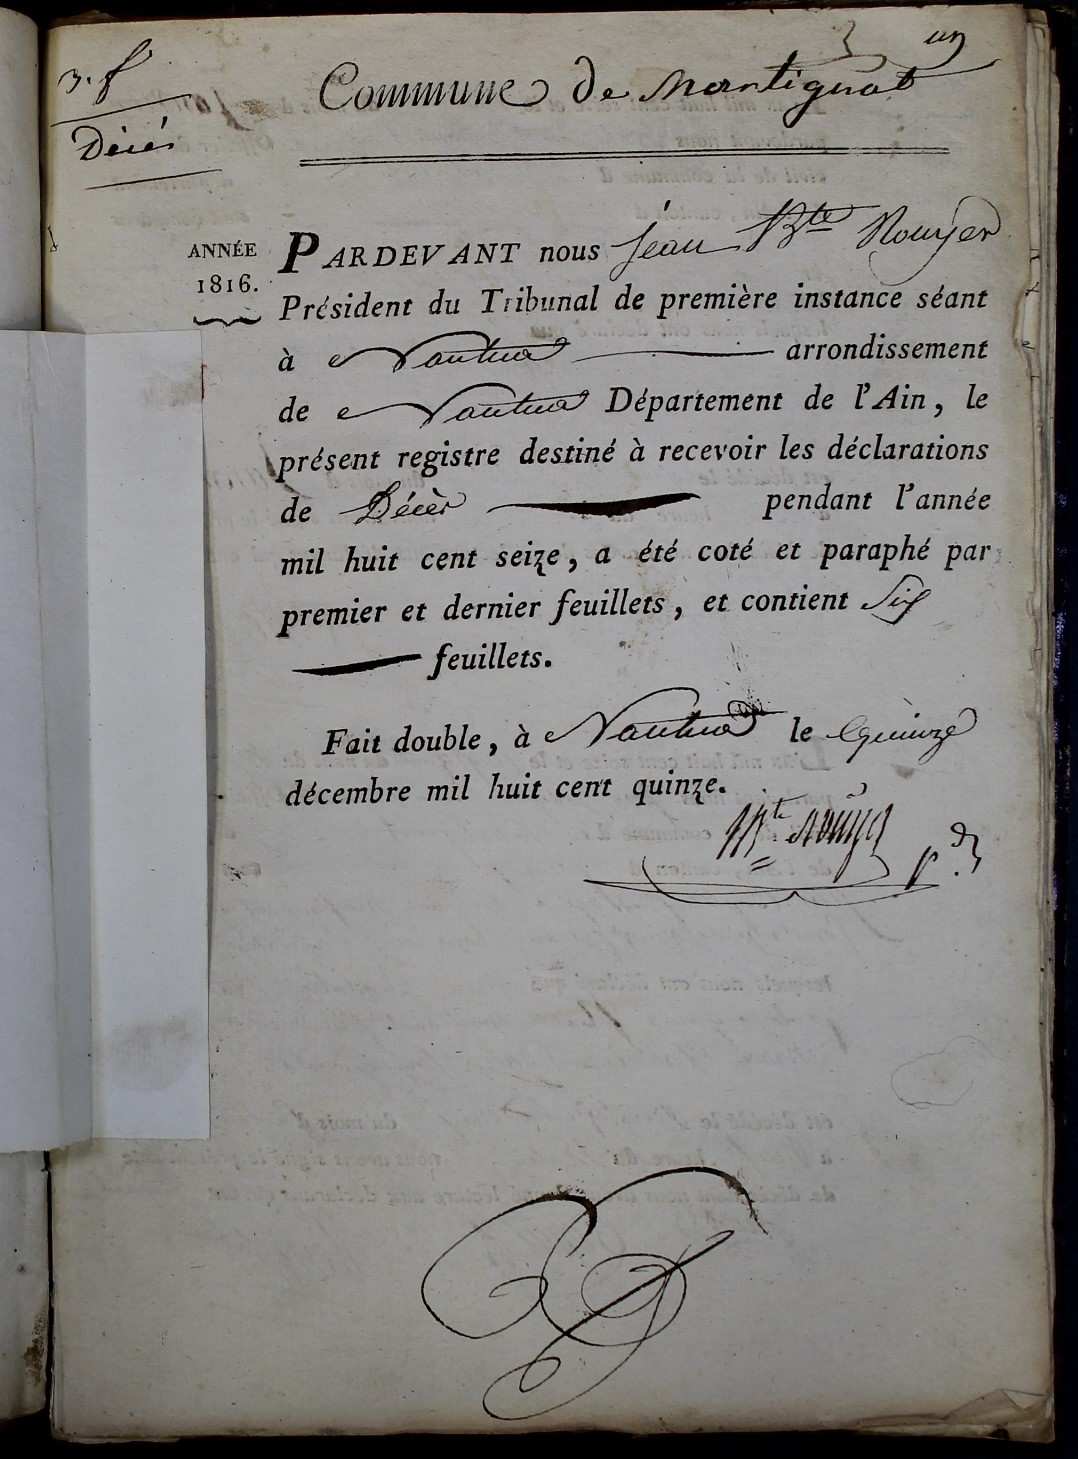 un
3. f
Commune de Martignat
Décès
ANNÉE
1816.
PARDEVANT nous Jean Bte Rouyer
Président du Tribunal de première instance séant
à Nantua arrondissement
de Nantua Département de l'Ain, le
présent registre destiné à recevoir les déclarations
de Décès pendant l'année
mil huit cent seize, a été coté et paraphé par
premier et dernier feuillets, et contient Six
feuillets.
Fait double, à Nantua le Quinze
décembre mil huit cent quinze.